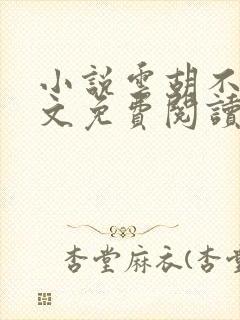 小說雲胡不
文免費閱讀
杏堂麻衣(杏堂